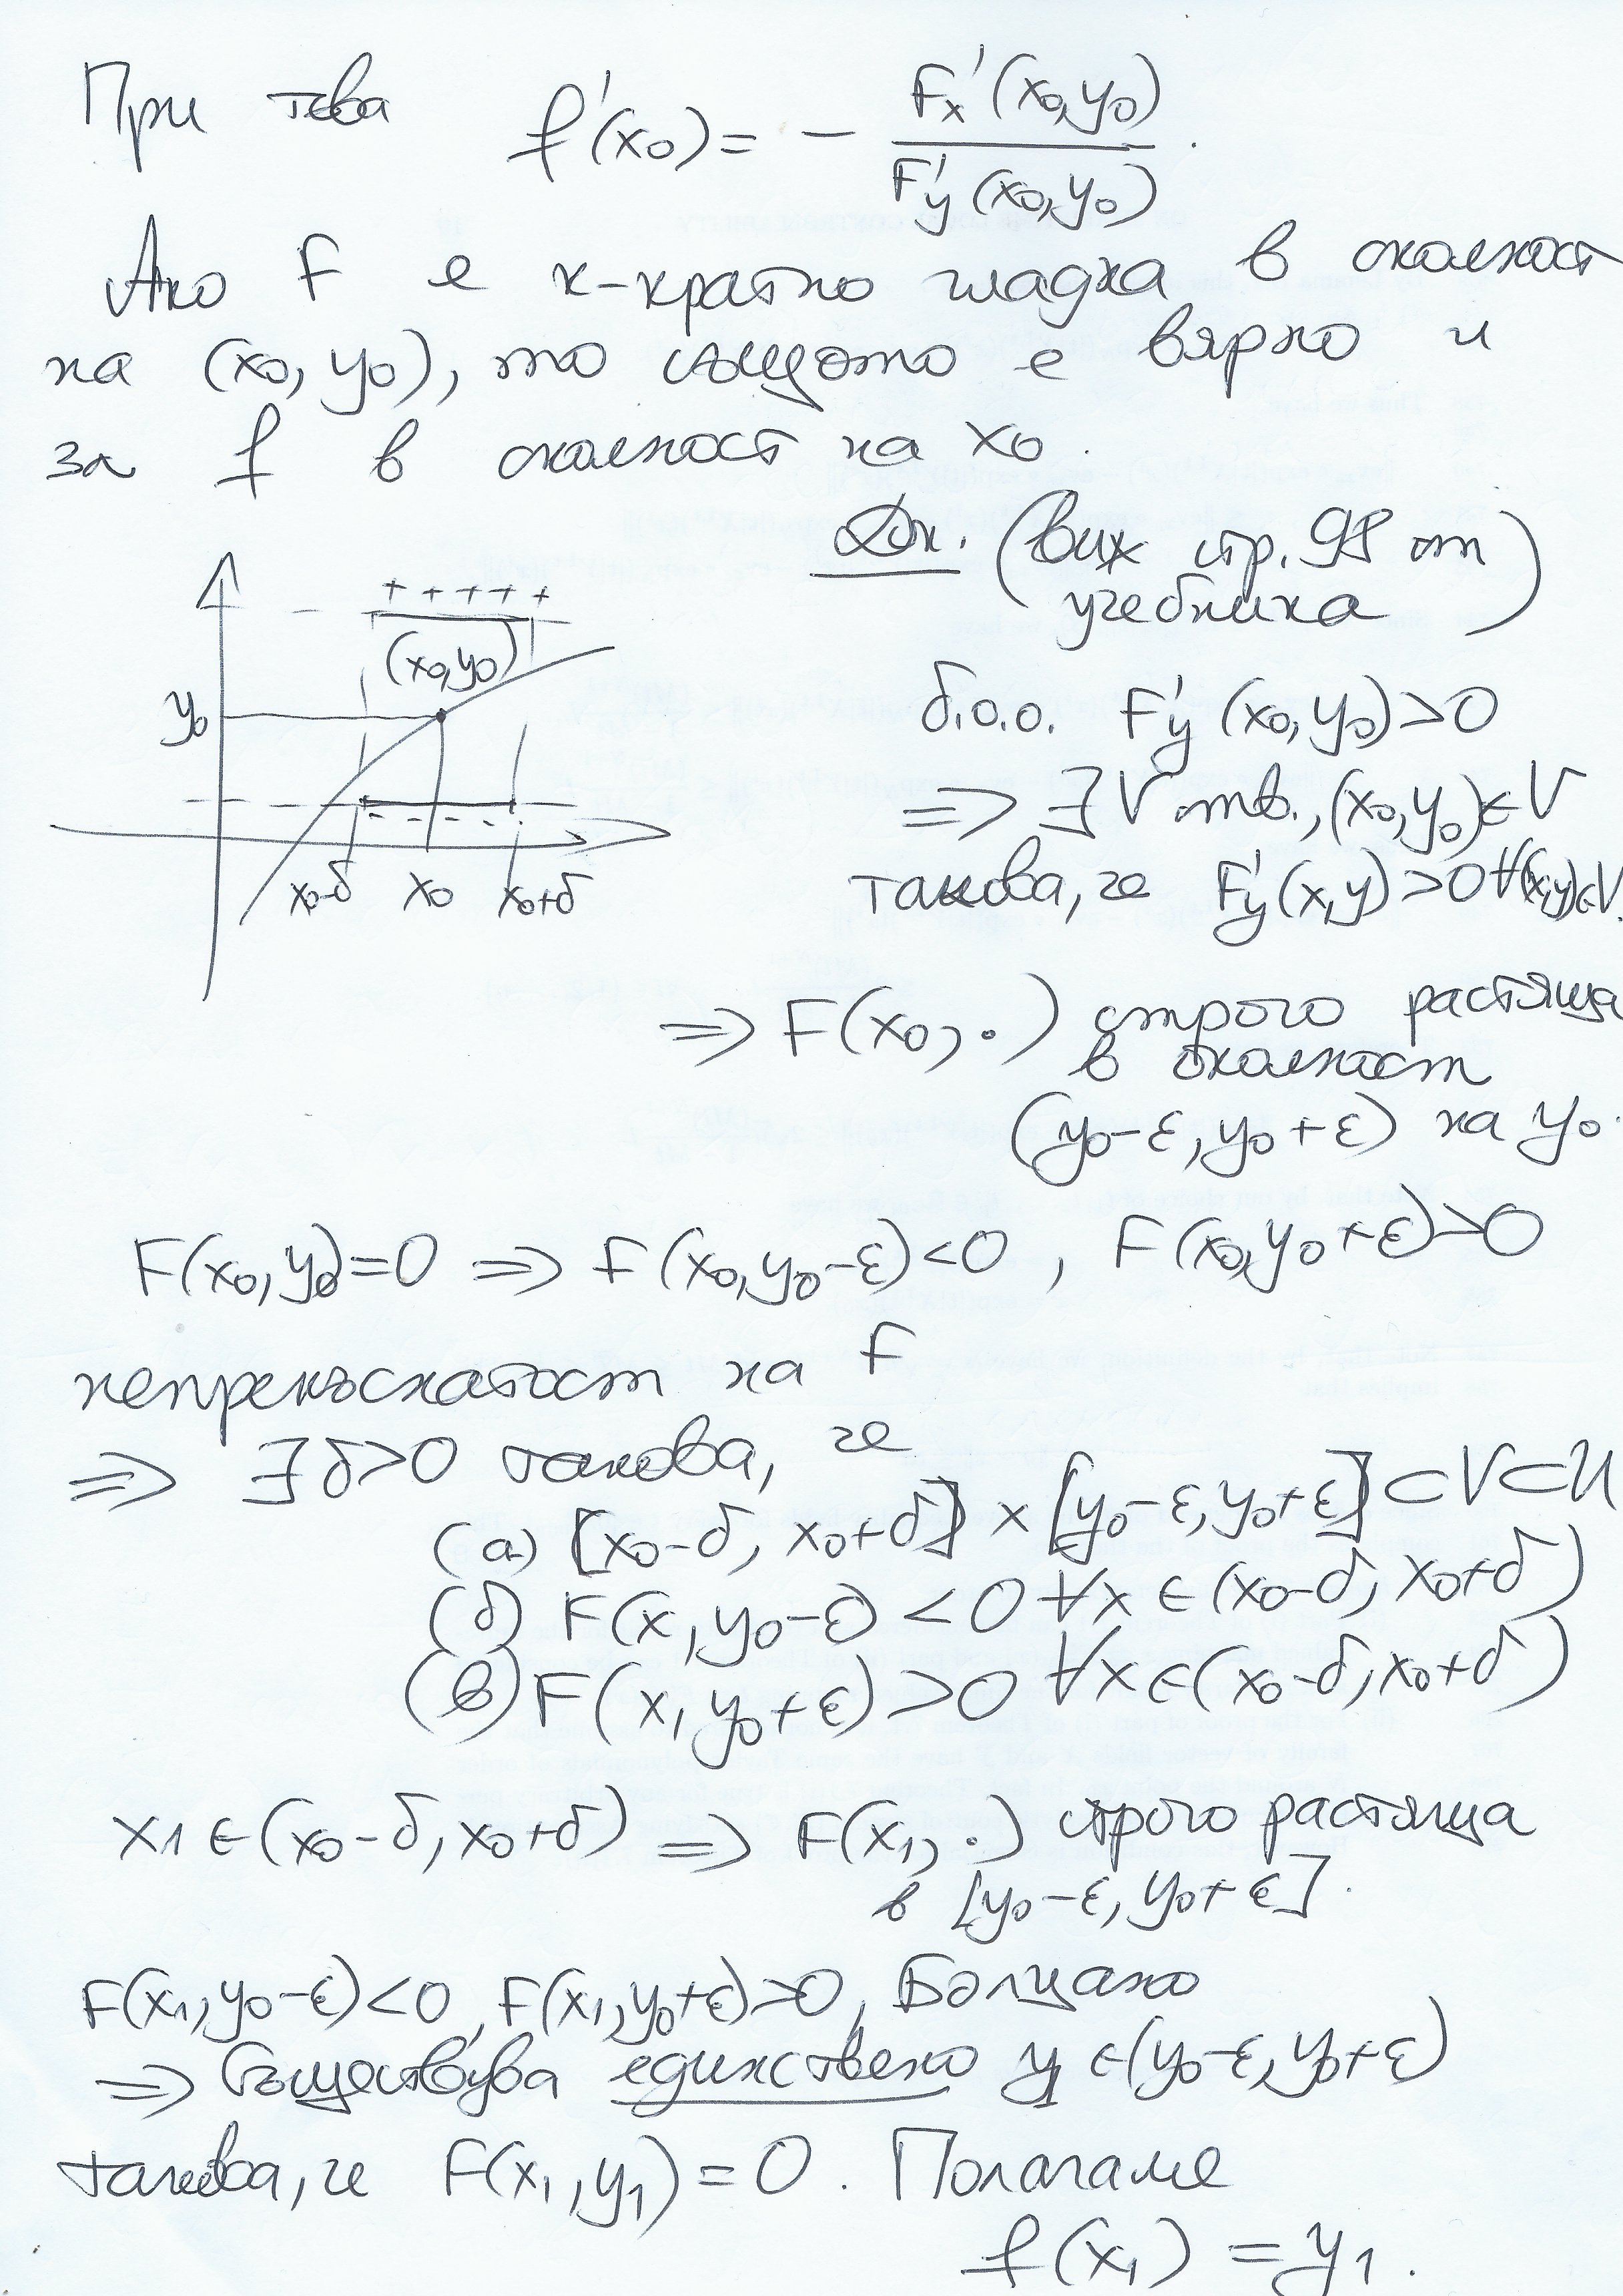 При това f'(x₀) = − F'ₓ(x₀,y₀) / F'ᵧ(x₀,y₀) .
Ако F е k-кратно гладка в околност
на (x₀, y₀), то същото е вярно и
за f в околност на x₀.
Док. (виж стр. 98 от
учебника)
+ + + + +
(x₀,y₀)
y₀
x₀-δ x₀ x₀+δ
б.о.о. F'ᵧ(x₀, y₀)>0
⇒ ∃ V отв., (x₀, y₀)∈V
такова, че F'ᵧ(x,y)>0 ∀(x,y)∈V.
⇒ F(x₀, ·) строго растяща
в околност
(y₀-ε, y₀+ε) на y₀.
F(x₀, y₀)=0 ⇒ F(x₀, y₀-ε)<0 , F(x₀, y₀+ε)>0
непрекъснатост на F
⇒ ∃ δ>0 такова, че
(а) [x₀-δ, x₀+δ] × [y₀-ε, y₀+ε] ⊂ V ⊂ U
(б) F(x, y₀-ε) < 0 ∀x ∈ (x₀-δ, x₀+δ)
(в) F(x, y₀+ε) > 0 ∀x ∈ (x₀-δ, x₀+δ)
x₁ ∈ (x₀-δ, x₀+δ) ⇒ F(x₁, ·) строго растяща
в [y₀-ε, y₀+ε].
F(x₁, y₀-ε)<0, F(x₁, y₀+ε)>0, Болцано
⇒ Съществува единствено y₁ ∈ (y₀-ε, y₀+ε)
такова, че F(x₁, y₁) = 0. Полагаме
f(x₁) = y₁.